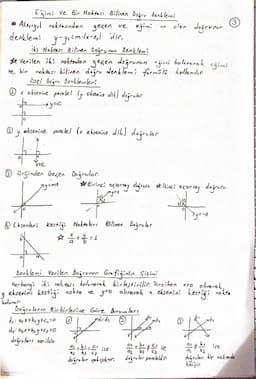 Eğimi ve Bir Noktası Bilinen Doğru Denklemi
3
A(x₁,y₁) noktasından geçen ve eğimi m olan doğrunun
denklemi y-y₁=m(x-x₁) 'dir.
İki Noktası Bilinen Doğrunun Denklemi
Verilen iki noktadan geçen doğrunun eğimi bulunarak eğimi
ve bir noktası bilinen doğru denklemi formülü kullanılır.
Özel Doğru Denklemleri
① x eksenine paralel (y eksenine dik) doğrular
② y eksenine paralel (x eksenine dik) doğrular
③ Orijinden Geçen Doğrular
y=mx
Birinci açıortay doğrusu
İkinci açıortay doğrusu
④ Eksenleri Kestiği Noktaları Bilinen Doğrular
x/a + y/b = 1
Denklemi Verilen Doğrunun Grafiğinin Çizimi
Herhangi iki noktası bulunarak birleştirilir.
y eksenini kestiği nokta ve y=0 alınarak x eksenini kestiği nokta
bulunur.
Doğruların Birbirlerine Göre Durumları
d₁: a₁x+b₁y+c₁=0
d₂: a₂x+b₂y+c₂=0
doğruları verilsin
① a₁/a₂ = b₁/b₂ = c₁/c₂ ise
doğrular çakışıktır.
② a₁/a₂ = b₁/b₂ ≠ c₁/c₂ ise
doğrular paraleldir.
③ a₁/a₂ ≠ b₁/b₂ ise
doğrular bir noktada
kesişir.